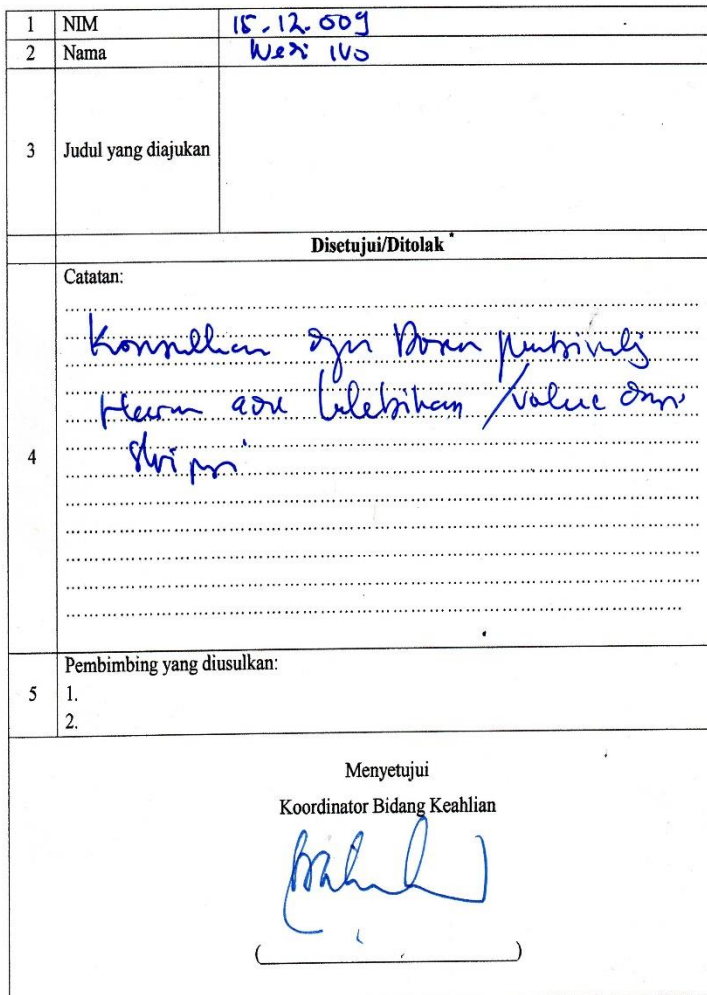 1 NIM 15.12.009
2 Nama Weri Ivo
3 Judul yang diajukan
Disetujui/Ditolak *
4 Catatan:
Konsultkan dgn Dosen pembimbg
Harus ada kelebihan / value dari
skripsi
5 Pembimbing yang diusulkan:
1.
2.
Menyetujui
Koordinator Bidang Keahlian
( )